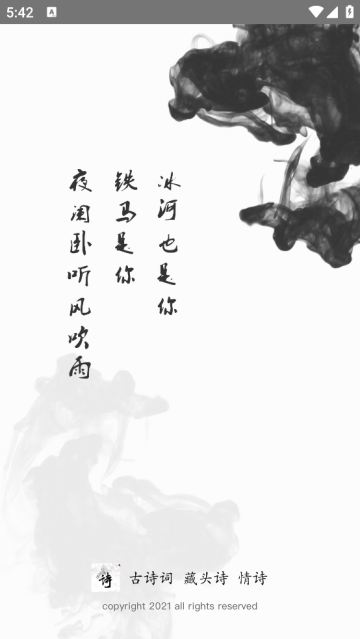 5:42
A
夜阑卧听风吹雨
铁马是你
冰河也是你
诗
古诗词 藏头诗 情诗
copyright 2021 all rights reserved